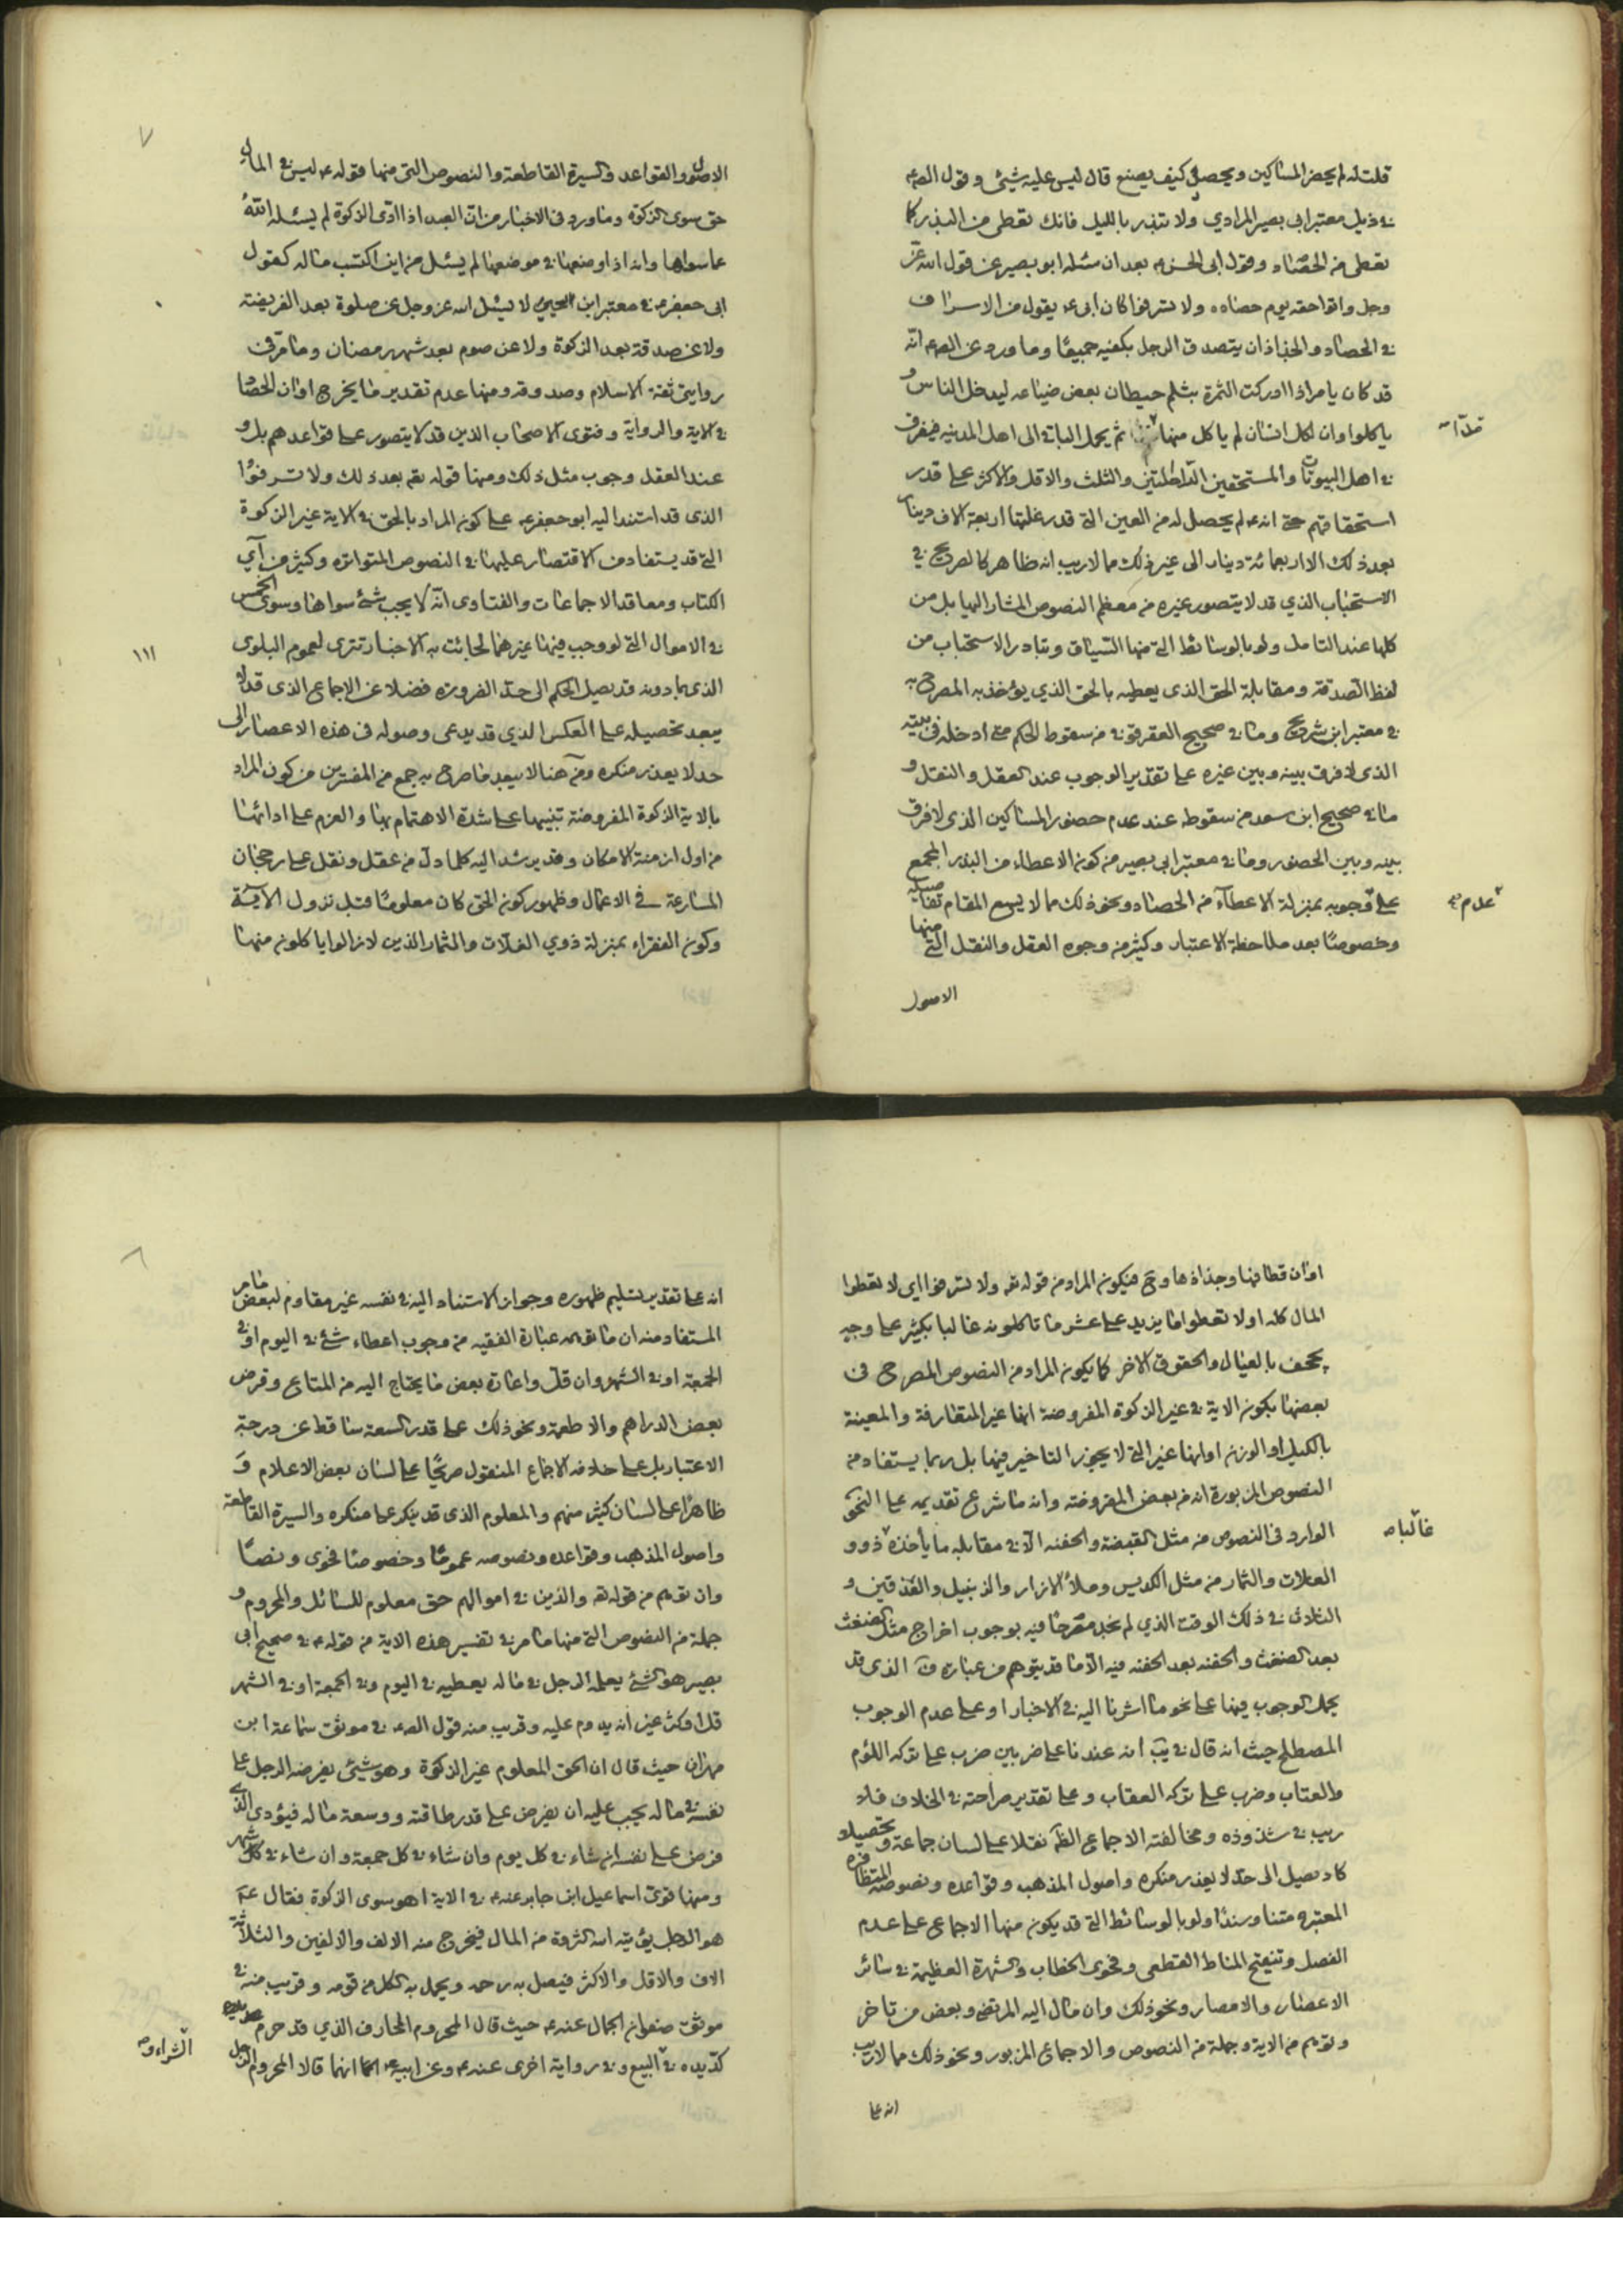 قلت له لم يحضر المساكين ويحصد كيف يصنع قال ليس عليه شيئ وقول الصم
في ذيل معتبر ابى بصير المرادي ولا تبذر بالليل فانك تعطى من البذر كما
تعطى من الحصاد وقول ابى الحسن ع بعد ان سئله ابو بصير عن قول الله عز
وجل واتوا حقه يوم حصاده ولا تسرفوا كان ابى ع يقول من الاسراف
في الحصاد والجذاذ ان يتصدق الرجل بكفيه جميعا وما ورد عن الصم انه
قد كان يامر اذا ادركت الثمرة بثلم حيطان بعض ضياعه ليدخل الناس و
ياكلوا وان لكل انسان لم ياكل منها ثم يحمل الباقى الى اهل المدينه فيفرق
قدآ
في اهل البيوتات والمستحقين والثلث والاقل والاكثر على قدر
استحقاقهم حتى انه ع لم يحصل له من العين التى قدر غلتها اربعة الاف دينار
بعد ذلك الا اربعمائة دينار الى غير ذلك مما لاريب انه ظاهر كالصريح في
الاستحباب الذي قد لا يتصور غيره من معظم النصوص المشار اليها بل من
كلها عند التامل ولو بالوسائط التى منها السياق وتبادر الاستحباب من
لفظ الصدقة ومقابلة الحق الذى يعطيه بالحق الذي يؤخذ به المصرح به
في معتبر ابن شريح وما في صحيح العقرقوفى من سقوط الحكم متى ادخله فى بيته
الذى لا فرق بينه وبين غيره على تقدير الوجوب عند العقل والنقل و
ما في صحيح ابن سعد من سقوطه عند عدم حضور المساكين الذى لا فرق
بينه وبين الحضور وما في معتبر ابى بصير من كون الاعطاء من البذر المجمع
على وجوبه بمنزلة الاعطآء من الحصاد ونحو ذلك مما لا يسع المقام
عدم
وخصوصا بعد ملاحظة الاعتبار وكثير من وجوه العقل والنقل التى منها
الاصول
٧
الاصول والقواعد والسيرة القاطعة والنصوص التى منها قوله ع ليس في المال
حق سوى الزكوة وما ورد فى الاخبار من ان العبد اذا ادى الزكوة لم يسئله الله
عما سواها وانه اذا وضعها في موضعها لم يسئل من اين اكتسب ماله كقول
ابى جعفر ع في معتبر ابن لا يسئل الله عز وجل عن صلوة بعد الفريضة
ولا عن صدقة بعد الزكوة ولا عن صوم بعد شهر رمضان وما مر فى
روايتى ثقة الاسلام وصدوقه ومنها عدم تقدير ما يخرج اوان الحصاد
في الاية والرواية وفتوى الاصحاب الذين قد لا يتصور على قواعدهم بل و
عند العقل وجوب مثل ذلك ومنها قوله تعم بعد ذلك ولا تسرفوا
الذى قد استند اليه ابو جعفر ع على كون المراد بالحق في الاية غير الزكوة
التى قد يستفاد من الاقتصار عليها في النصوص المتواتره وكثير من آي
الكتاب ومعاقد الاجماعات والفتاوى انه لا يجب شئ سواها وسوى الخمس
في الاموال التى لو وجب فيها غيرهما لجائت به الاخبار تترى لعموم البلوى
١١١
الذى بما دونه قد يصل الحكم الى حد الضرورة فضلا عن الاجماع الذى قد لا
يبعد تحصيله على العكس الذي قد يدعى وصوله فى هذه الاعصار الى
حد لا يعذر منكره ومن هنا لا يبعد ما صرح به جمع من المفسرين من كون المراد
بالاية الزكوة المفروضة تنبيها على شدة الاهتمام بها والعزم على ادائها
من اول ازمنة الامكان وقد يرشد اليه كلما دل من عقل ونقل على رجحان
المسارعة فى الاعمال وظهور كون الحق كان معلوما قبل نزول الآية
وكون الفقراء بمنزلة ذوي الغلات والثمار الذين لا زالوا ياكلون منها
اوان قطافها وجذاذها وح فيكون المراد من قوله تعم ولا تسرفوا اى لا تعطوا
المال كله او لا تعطوا ما يزيد على عشر ما تاكلونه غالبا بكثير على وجه
يجحف بالعيال والحقوق الاخر كما يكون المراد من النصوص المصرح فى
بعضها بكون الاية في غير الزكوة المفروضة انها غير المتعارفة والمعينة
بالكيل او الوزن او انها غير التى لا يجوز التاخير فيها بل ربما يستفاد من
النصوص المزبورة انه من بعض المفروضة وانه ما شرع تقديمه على النحو
الوارد فى النصوص من مثل القبضة والحفنه الا في مقابلة ما يأخذه ذوو
غالبا
الغلات والثمار من مثل الكديس وملأ الازار والزنبيل والعذقين و
في ذلك الوقت الذي لم نجد مصرحا فيه بوجوب اخراج مثل الضغث
بعد الضغث والحفنه بعد الحفنه فيه الا ما قد يتوهم من عبارة ف الذى قد
يحمل الوجوب فيها على نحو ما اشرنا اليه في الاخبار او على عدم الوجوب
المصطلح حيث انه قال في يب انه عندنا على ضربين ضرب على تركه اللؤم
والعتاب وضرب على تركه العقاب وعلى تقدير صراحته في الخلاف فلا
ريب في شذوذه ومخالفته الاجماع الظ نقلا على لسان جماعة وتحصيلا
كاد يصل الى حد لا يعذر منكره واصول المذهب وقواعده ونصوصه المتظافره
المعتبره متنا وسندا ولو بالوسائط التى قد يكون منها الاجماع على عدم
الفصل وتنقيح المناط القطعى وفحوى الخطاب والشهرة العظيمة في سائر
الاعصار والامصار ونحو ذلك وان مال اليه المرتضى وبعض من تاخر
وتوهم من الاية وجملة من النصوص والاجماع المزبور ونحو ذلك مما لاريب
انه على
٨
انه على تقدير تسليم ظهوره وجواز الاستناد اليه في نفسه غير مقاوم لبعض ما مر
المستفاد منه ان ما توهمه عبارة الفقيه من وجوب اعطاء شئ في اليوم او في
الجمعة او في الشهر وان قل واعارة بعض ما يحتاج اليه من المتاع وقرض
بعض الدراهم والاطعمة ونحو ذلك على قدر السعة ساقط عن درجة
الاعتبار بل على خلافه الاجماع المنقول صريحا على لسان بعض الاعلام و
ظاهرا على لسان كثير منهم والمعلوم الذى قد ينكر على منكره والسيرة القاطعة
واصول المذهب وقواعده ونصوصه عموما وخصوصا فحوى ونصا
وان توهم من قوله تعم والذين في اموالهم حق معلوم للسائل والمحروم و
جملة من النصوص التى منها ما مر في تفسير هذه الاية من قوله ع في صحيح ابى
بصير هو الشئ يعمله الرجل في ماله يعطيه في اليوم وفى الجمعة او في الشهر
قل او كثر غير انه يدوم عليه وقريب منه قول الصم في موثق سماعة ابن
مهران حيث قال ان الحق المعلوم غير الزكوة وهو شيئ يفرضه الرجل على
نفسه في ماله يجب عليه ان يفرض على قدر طاقته ووسعة ماله فيؤدى الذى
فرض على نفسه ان شاء في كل يوم وان شاء في كل جمعة وان شاء في كل شهر
ومنها قوى اسماعيل ابن جابر عنه ع في الاية اهو سوى الزكوة فقال ع
هو الرجل يؤتيه الله الثروة من المال فيخرج منه الالف والالفين والثلاثة
الاف والاقل والاكثر فيصل به رحمه ويحمل به الكل من قومه وقريب منه في
موثق صفوان الجمال عنه ع حيث قال المحروم المحارف الذي قد حرم
كد يده في البيع وفى رواية اخرى عنه ع وعن ابيه ع انهما قالا المحروم الرجل
الشراء و